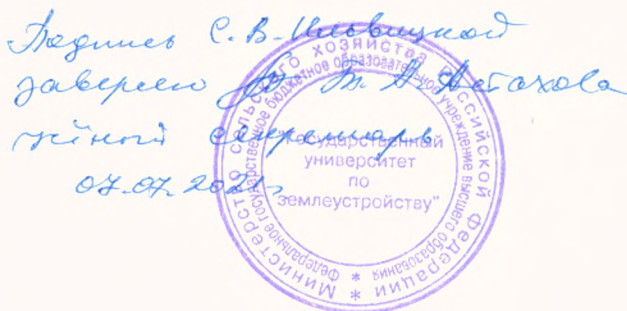 Подпись С.В. Ильвицкой
заверяю Т. А. Астахова
учёный секретарь
07.07.2021г
Министерство сельского хозяйства Российской Федерации *
Федеральное государственное бюджетное образовательное учреждение высшего образования *
"Государственный
университет
по
землеустройству"